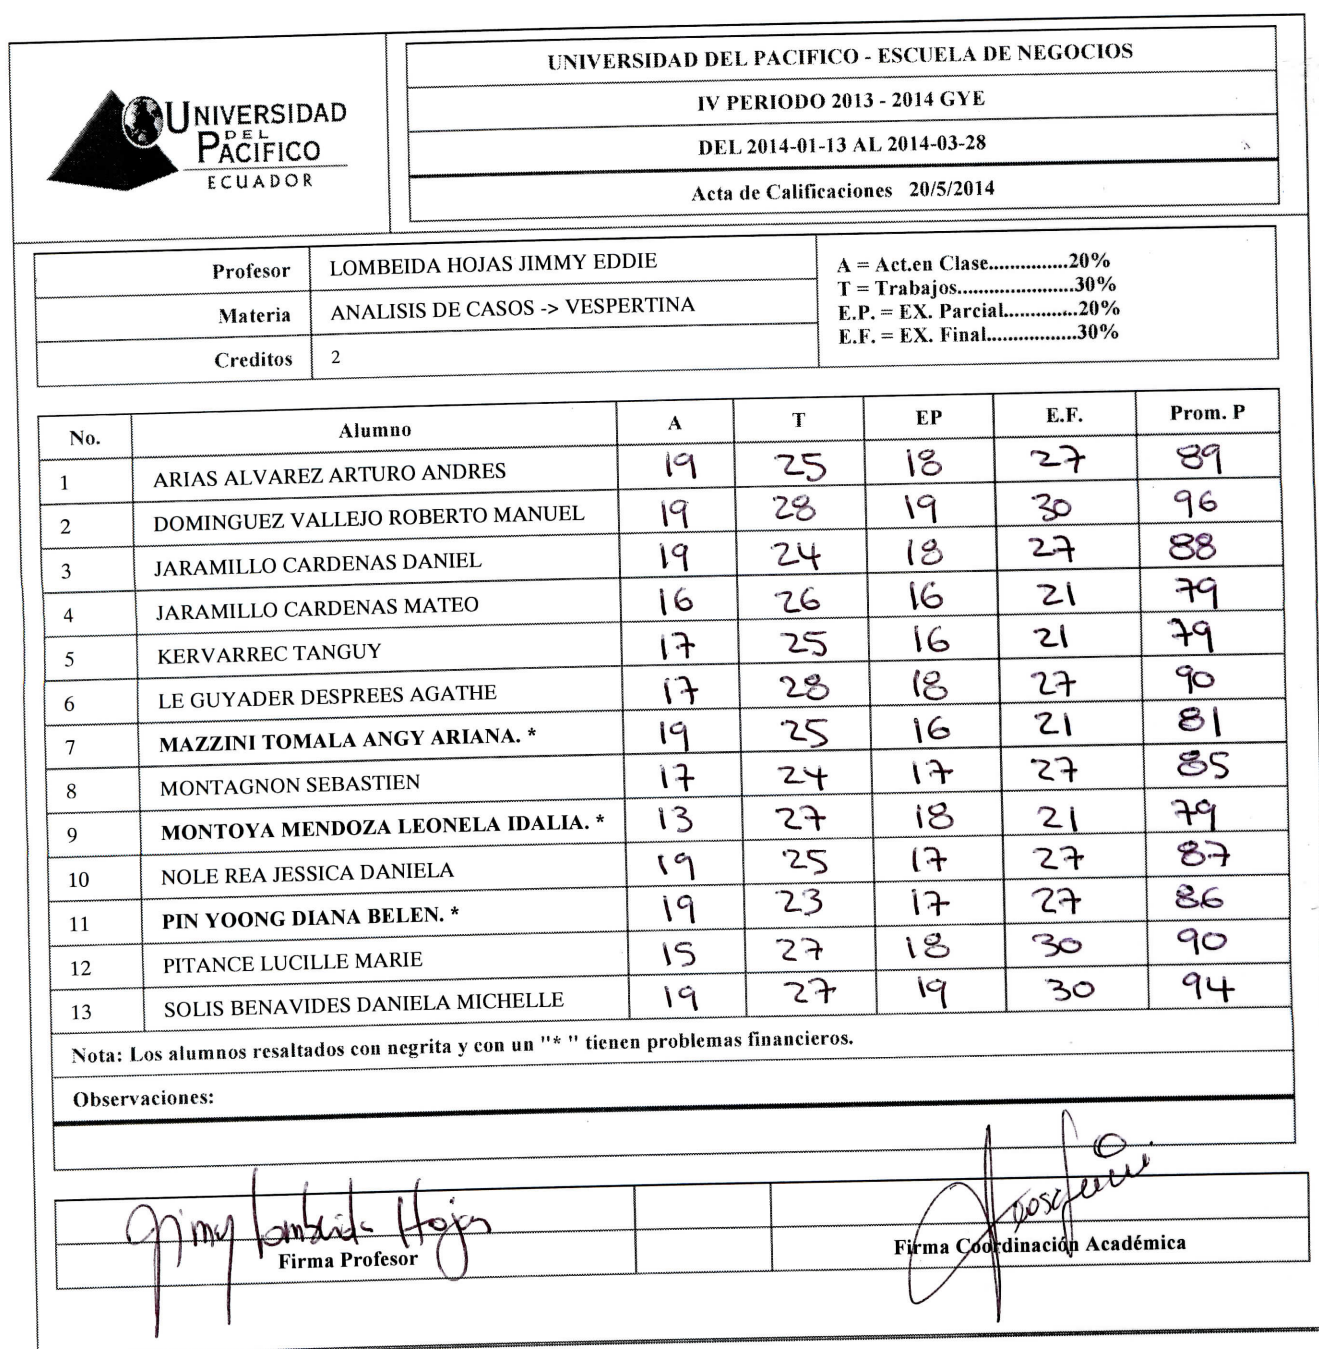 UNIVERSIDAD
DEL
PACIFICO
ECUADOR
UNIVERSIDAD DEL PACIFICO - ESCUELA DE NEGOCIOS
IV PERIODO 2013 - 2014 GYE
DEL 2014-01-13 AL 2014-03-28
Acta de Calificaciones 20/5/2014
Profesor LOMBEIDA HOJAS JIMMY EDDIE
Materia ANALISIS DE CASOS -> VESPERTINA
Creditos 2
A = Act.en Clase...............20%
T = Trabajos......................30%
E.P. = EX. Parcial..............20%
E.F. = EX. Final.................30%
No. Alumno A T EP E.F. Prom. P
1 ARIAS ALVAREZ ARTURO ANDRES 19 25 18 27 89
2 DOMINGUEZ VALLEJO ROBERTO MANUEL 19 28 19 30 96
3 JARAMILLO CARDENAS DANIEL 19 24 18 27 88
4 JARAMILLO CARDENAS MATEO 16 26 16 21 79
5 KERVARREC TANGUY 17 25 16 21 79
6 LE GUYADER DESPREES AGATHE 17 28 18 27 90
7 MAZZINI TOMALA ANGY ARIANA. * 19 25 16 21 81
8 MONTAGNON SEBASTIEN 17 24 17 27 85
9 MONTOYA MENDOZA LEONELA IDALIA. * 13 27 18 21 79
10 NOLE REA JESSICA DANIELA 19 25 17 27 87
11 PIN YOONG DIANA BELEN. * 19 23 17 27 86
12 PITANCE LUCILLE MARIE 15 27 18 30 90
13 SOLIS BENAVIDES DANIELA MICHELLE 19 27 19 30 94
Nota: Los alumnos resaltados con negrita y con un "* " tienen problemas financieros.
Observaciones:
Jimmy Lombeida Hojas
Firma Profesor
Firma Coordinación Académica